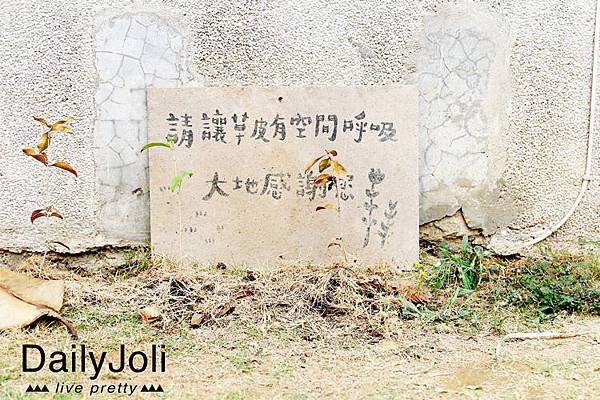 請讓草皮有空間呼吸
大地感謝您
DailyJoli
live pretty